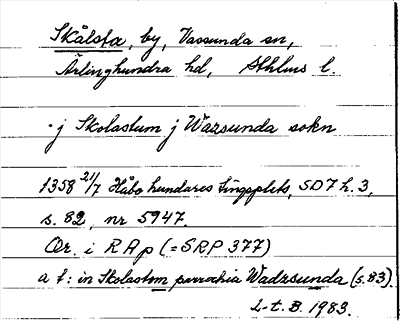 Skålsta, by, Vassunda sn,
Ärlinghundra hd, Sthlms l.
· j Skolastum j Wazsunda sokn
1358 21/7 Håbo hundares tingsplats, SD7 h. 3,
s. 82, nr 5947.
Or. i RAp (= SRP 377)
a t: in Skolastom parrochia Wadzsunda (s. 83)
L-t. B. 1983.